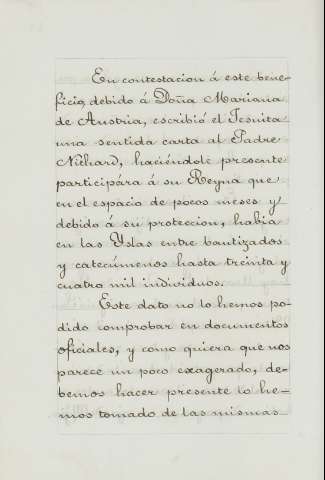 En contestacion á este bene-
ficio, debido á Doña Mariana
de Austria, escribió el Jesuita
una sentida carta al Padre
Nithard, haciéndole presente
participára á su Reyna que
en el espacio de pocos meses y
debido á su proteccion, habia
en las Yslas entre bautizados
y catecúmenos hasta treinta y
cuatro mil individuos.
Este dato no lo hemos po-
dido comprobar en documentos
oficiales, y como quiera que nos
parece un poco exagerado, de-
bemos hacer presente lo he-
mos tomado de las mismas